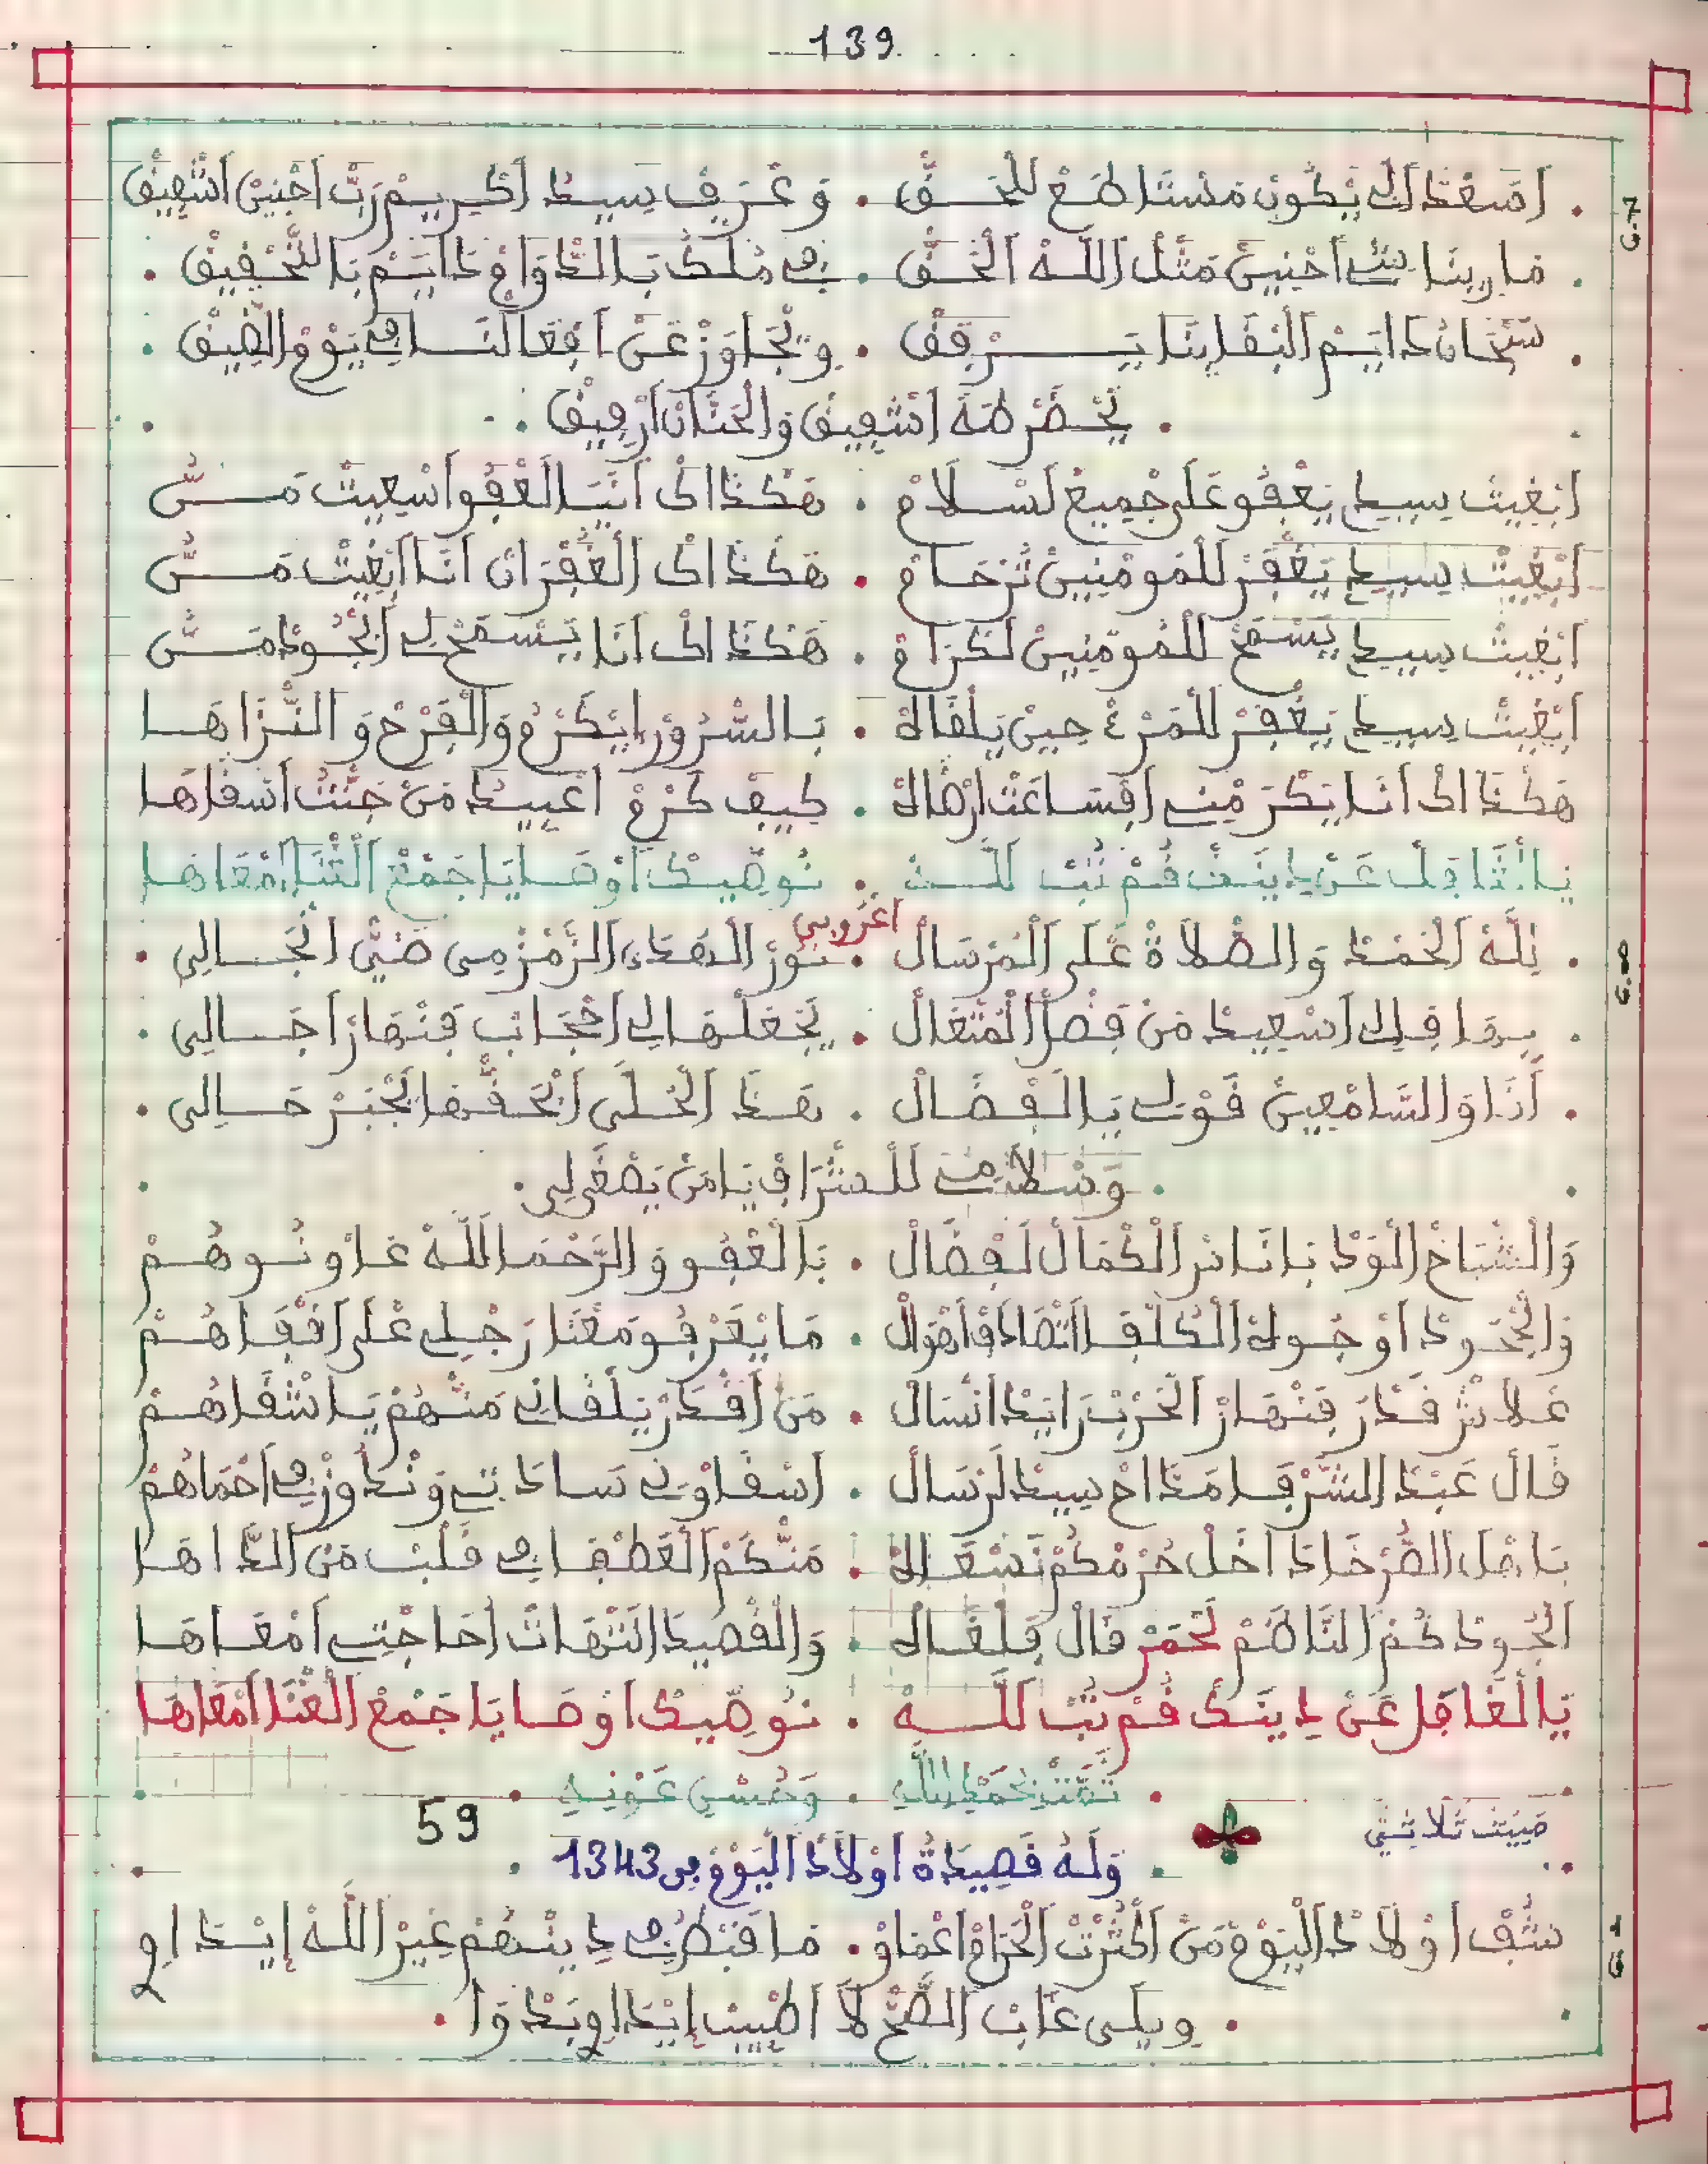 139
اَمْسَعْدْ اَلِّي يْكُونْ مَسْتَاطَعْ لَلْحَقّْ . وَعْرَفْ سِيدُ اَكْرِيمْ رَبّْ اَحْنِينْ اَشْفِيقْ
مَا رِينَا شِي اَحْنِينْ مَثْلْ اَللَّهْ اَلْحَقّْ . فِي مُلْكُ بَالدّْوَامْ دَايَمْ بَالتَّحْقِيقْ
سُبْحَانُ دَايَمْ اَلْبْقَا بِنَا يَرْفَقْ . وِيتْجَاوَزْ عَنْ اَفْعَالْنَا فِي يَوْمْ الضِّيقْ
يَحْضَرْ طَهَ اَشْفِيقْ وَالْحَنَّانْ اَرْفِيقْ
اَبْغِيتْ سِيدِي يَعْفُو عَلَى جْمِيعْ لَسْلَامْ . هَكْدَاكْ اَنَا اَلْعَفُو اَسْعِيتْ مَنُّ
اَبْغِيتْ سِيدِي يَغْفَرْ لَلْمُومْنِينْ تُرْحَامْ . هَكْدَاكْ اَلْغُفْرَانْ اَنَا اَبْغِيتْ مَنُّ
اَبْغِيتْ سِيدِي يَسْمَحْ لَلْمُومْنِينْ لَكْرَامْ . هَكْدَاكْ اَنَا يَسْمَحْ لِي اَبْجُودْ مَنُّ
اَبْغِيتْ سِيدِي يَغْفَرْ لَلْمَرْءْ حِينْ يَلْقَاهْ . بَالسّْرُورْ اِيْكَرْمُ وَالْفَرْحْ وَالنّْزَاهَا
هَكْدَاكْ اَنَا يَكْرَمْنِي اَفْسَاعَتْ اَرْضَاهْ . كِيفْ كَرّْمْ اَعْبِيدُ مَنْ جَنّْتُ اَسْقَاهَا
يَا الْغَافَلْ عَنْ دِينَكْ قُمْ تُبْ لَلَّهْ . نُوصِّيكْ اَوْصَايَا جَمْعْ اَلْغْنَا اَمْعَاهَا
اعروبي
لِلَّهْ اَلْحَمْدْ وَالصّْلَاةْ عْلَى اَلْمُرْسَالْ . نُورْ اَلْهُدَى اَلزَّمْزْمِي ضَيّْ اَنْجَالِي
بِهَا قَلْبِي اَسْعِيدْ مَنْ فَضْلْ اَلْمُتْعَالْ . يَجْعَلْهَا لِي اَحْجَابْ فَنْهَارْ اَجَالِي
اَنَا وَالسَّامْعِينْ قَوْلِي يَا الْفُضَّالْ . هَدَ اَلْحُلَّى اَبْحَقّْهَا يَجْبَرْ حَالِي
وَسْلَامِي لَلشّْرَافْ يَا مَنْ يَصْغَى لِي
وَالْشْيَاخْ اَلْوَدْ يَا نَاسْ اَلْكْمَالْ لَفْضَالْ . بَالْعَفُو وَالرَّحْمَا اَللَّهْ عَاوْنُوهُمْ
وَالْجْحُودْ اَوْجُوهْ اَلْكُلْفَا . مَا يْعَرْفُو مَعْنَا رَجْلِي عْلَى اَقْفَاهُمْ
عْلَاشْ قَدَّرْ فَنْهَارْ اَلْحَرْبْ رَايَدْ اَنْسَالْ . مَنْ اَقْدَرْ يَلْقَانِي مَنْهُمْ يَا اشْقَاهُمْ
قَالْ عَبْدْ اَلشُّرْفَا مَدَّاحْ سِيدْ لَرْسَالْ . اَسْقَاوْنِي سَادَاتِي وَنْدُوزْ فِي اَحْمَاهُمْ
يَا هْلْ اَلصُّرْخَا دَاخَلْ حُرْمْكُمْ نَسْعَاهْ . مَنّْكُمْ اَلْعَطْفَا فِي قَلْبْ مَنْ اَلدَّاهَا
اَلْجُودْكُمْ اَلنَّاظَمْ لَحْمَرْ قَالْ فَلْغَاهْ . وَالْقْصِيدَا اَنْتْهَاتْ اَحَاجْتِي اَمْعَاهَا
يَا الْغَافَلْ عَنْ دِينَكْ قُمْ تُبْ لَلَّهْ . نُوصِّيكْ اَوْصَايَا جَمْعْ اَلْغْنَا اَمْعَاهَا
تَمَّتْ بِحَمْدِ اللَّهِ . وَحُسْنِ عَوْنِهِ
59
مبيت ثلاثي
وَلَهُ قَصِيدَةُ اَوْلَادْ اَلْيَوْمْ فى 1343
شُفْ اَوْلَادْ اَلْيَوْمْ مَنْ اَكْثَرْتْ اَلْحْرَامْ اَعْمَاوْ . مَا فَنْظَرْ فِي دِينْهُمْ غِيرْ اَللَّهْ اِيْدَاوِي
وِيلَى عَابْ اَلصَّحّْ لَا اَطْبِيبْ اِيْدَاوِي بَدْوَا